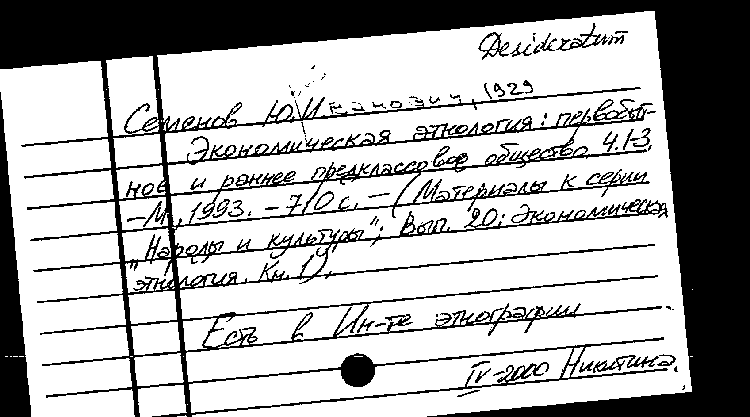 Desideratum
Семенов Ю.Иванович, 1929
Экономическая этнология: первобыт-
ное и раннее предклассовое общество. Ч.1-3.
-М., 1993. - 710 с. - (Материалы к серии
„Народы и культуры"; Вып. 20: Экономическая
этнология. Кн. 1).
Есть в Ин-те этнографии
IV-2000 Никитина.